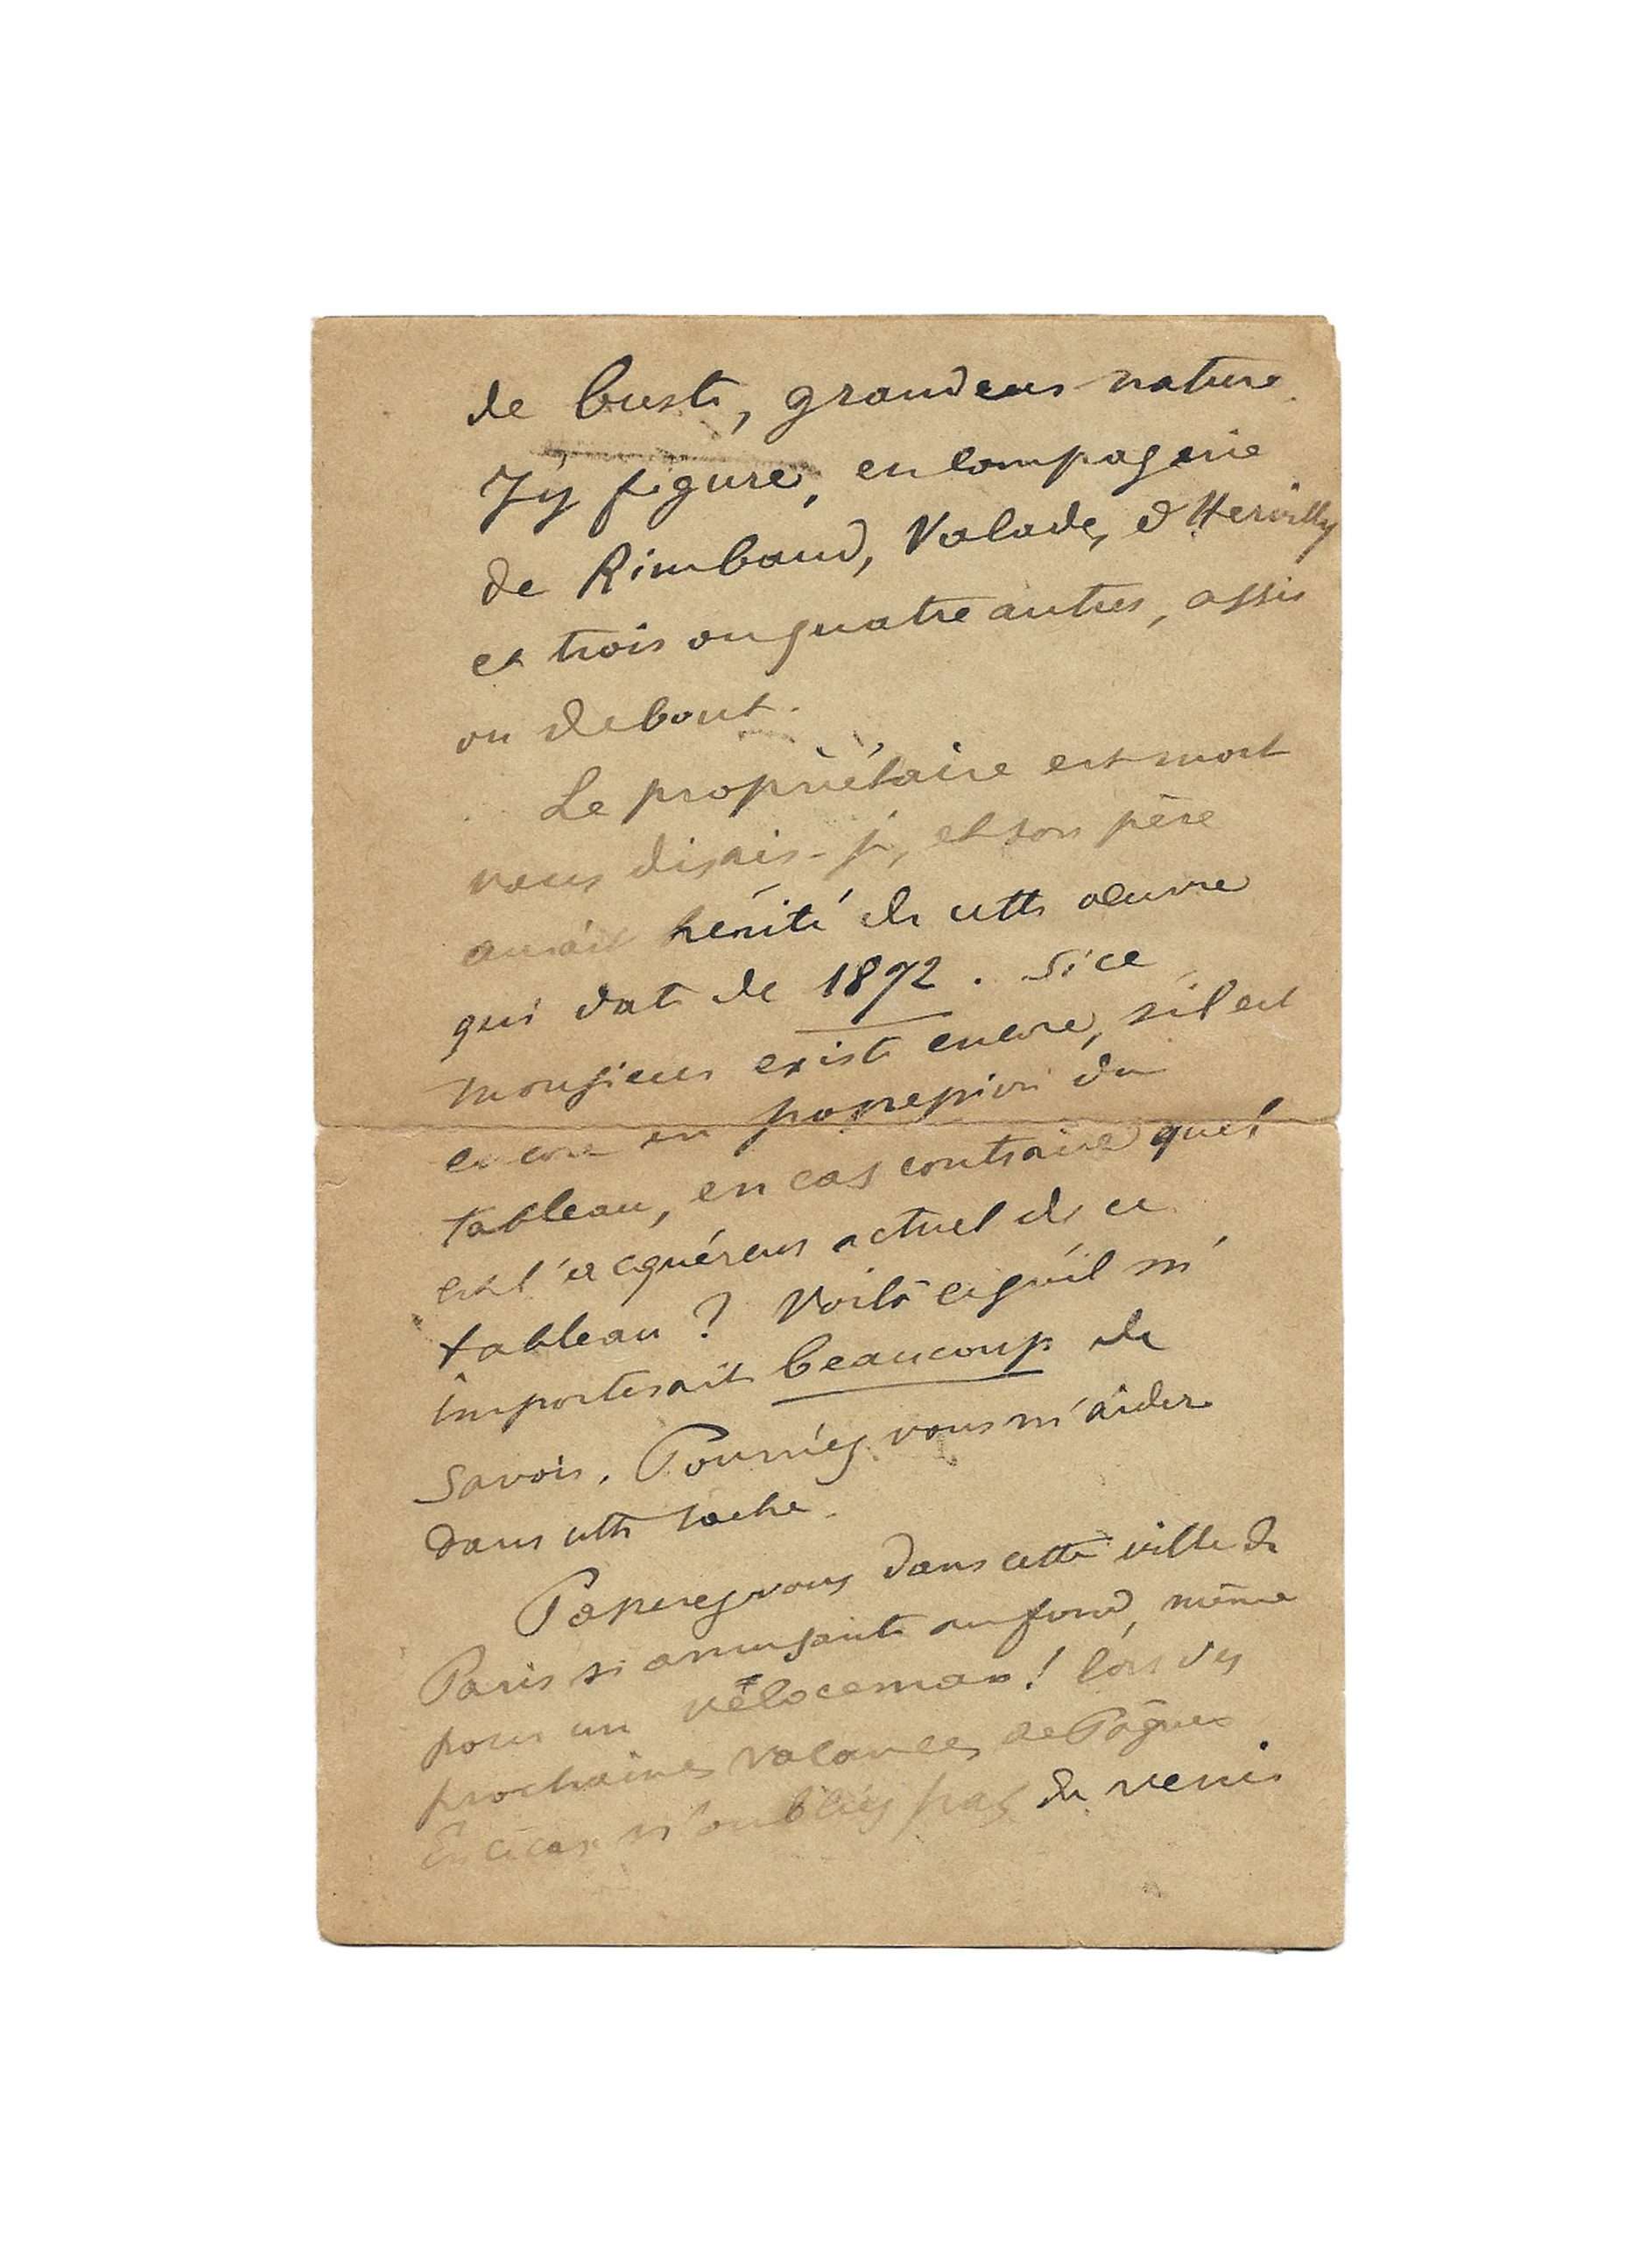 de buste, grandeur nature.
J'y figure, en compagnie
de Rimbaud, Valade, d'Hervilly
et trois ou quatre autres, assis
ou debout.
Le propriétaire est mort
vous disais-je, et son père
aurait hérité de cette œuvre
qui date de 1872. Si ce
monsieur existe encore, s'il est
encore en possession du
tableau, en cas contraire quel
est l'acquéreur actuel de ce
tableau ? Voilà ce qu'il m'
importerait beaucoup de
savoir. Pourriez vous m'aider
dans cette tache.
Passerez vous dans cette ville de
Paris si amusante au fond, même
pour un véloceman ! lors des
prochaines vacances de Pâques
En ce cas n'oubliez pas de venir